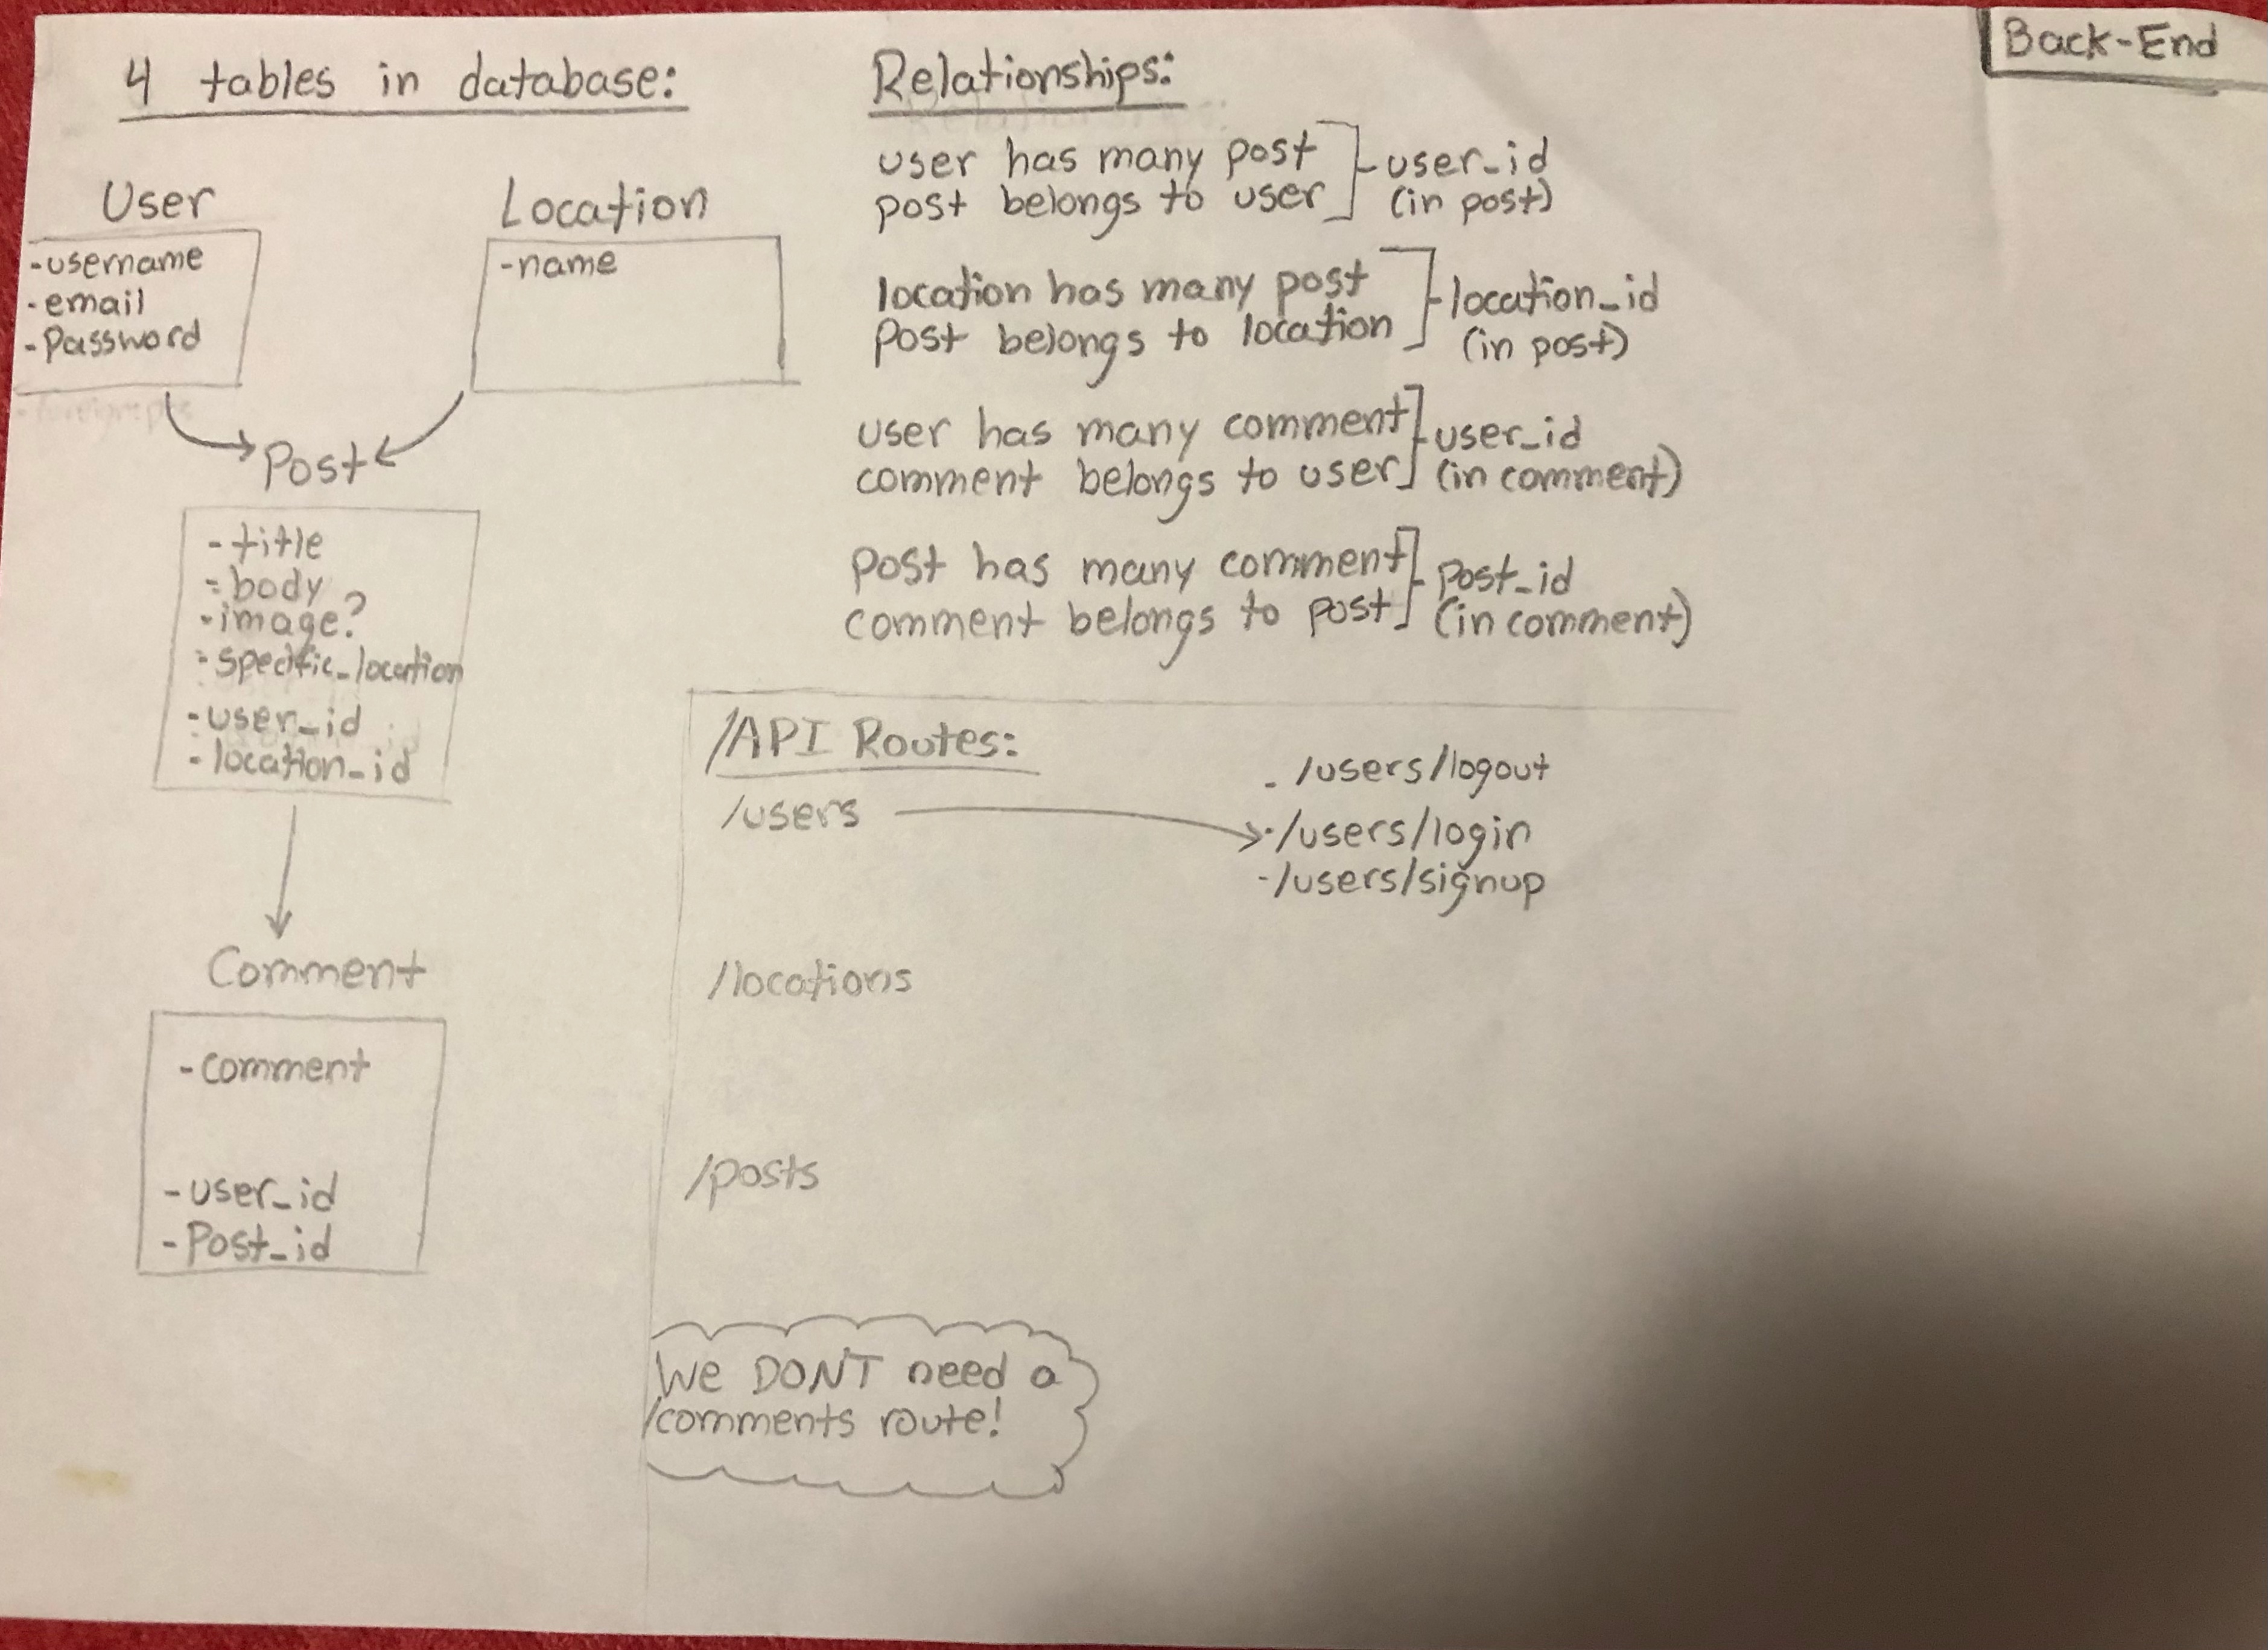 Back-End
4 tables in database:
User
-username
-email
-Password
Location
-name
Post
-title
-body
-image?
-specific_location
-user_id
-location_id
Comment
-comment
-user_id
-Post_id
Relationships:
user has many post
post belongs to user
user_id
(in post)
location has many post
Post belongs to location
location_id
(in post)
user has many comment
comment belongs to user
user_id
(in comment)
Post has many comment
comment belongs to post
Post_id
(in comment)
/API Routes:
/users
- /users/logout
-/users/login
-/users/signup
/locations
/posts
We DON'T need a
/comments route!